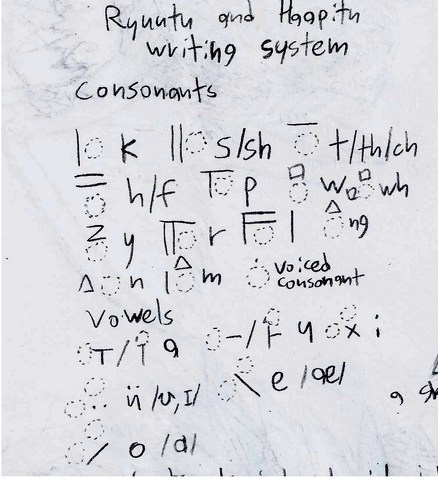 Ryuutu and Haapitu
writing system
Consonants
|◌ k ||◌ s/sh ‾◌ t/th/ch
=◌ h/f ◌ p □◌ w □◌ wh
◌ y ◌ r ◌ l △◌ ng
△◌ n |△◌ m ◌ voiced
consonant
Vowels
◌T/ a ◌-/ u ◌x i
◌.. ü /ʊ,ɪ/ ◌\ e /ae/
◌/ o /a/